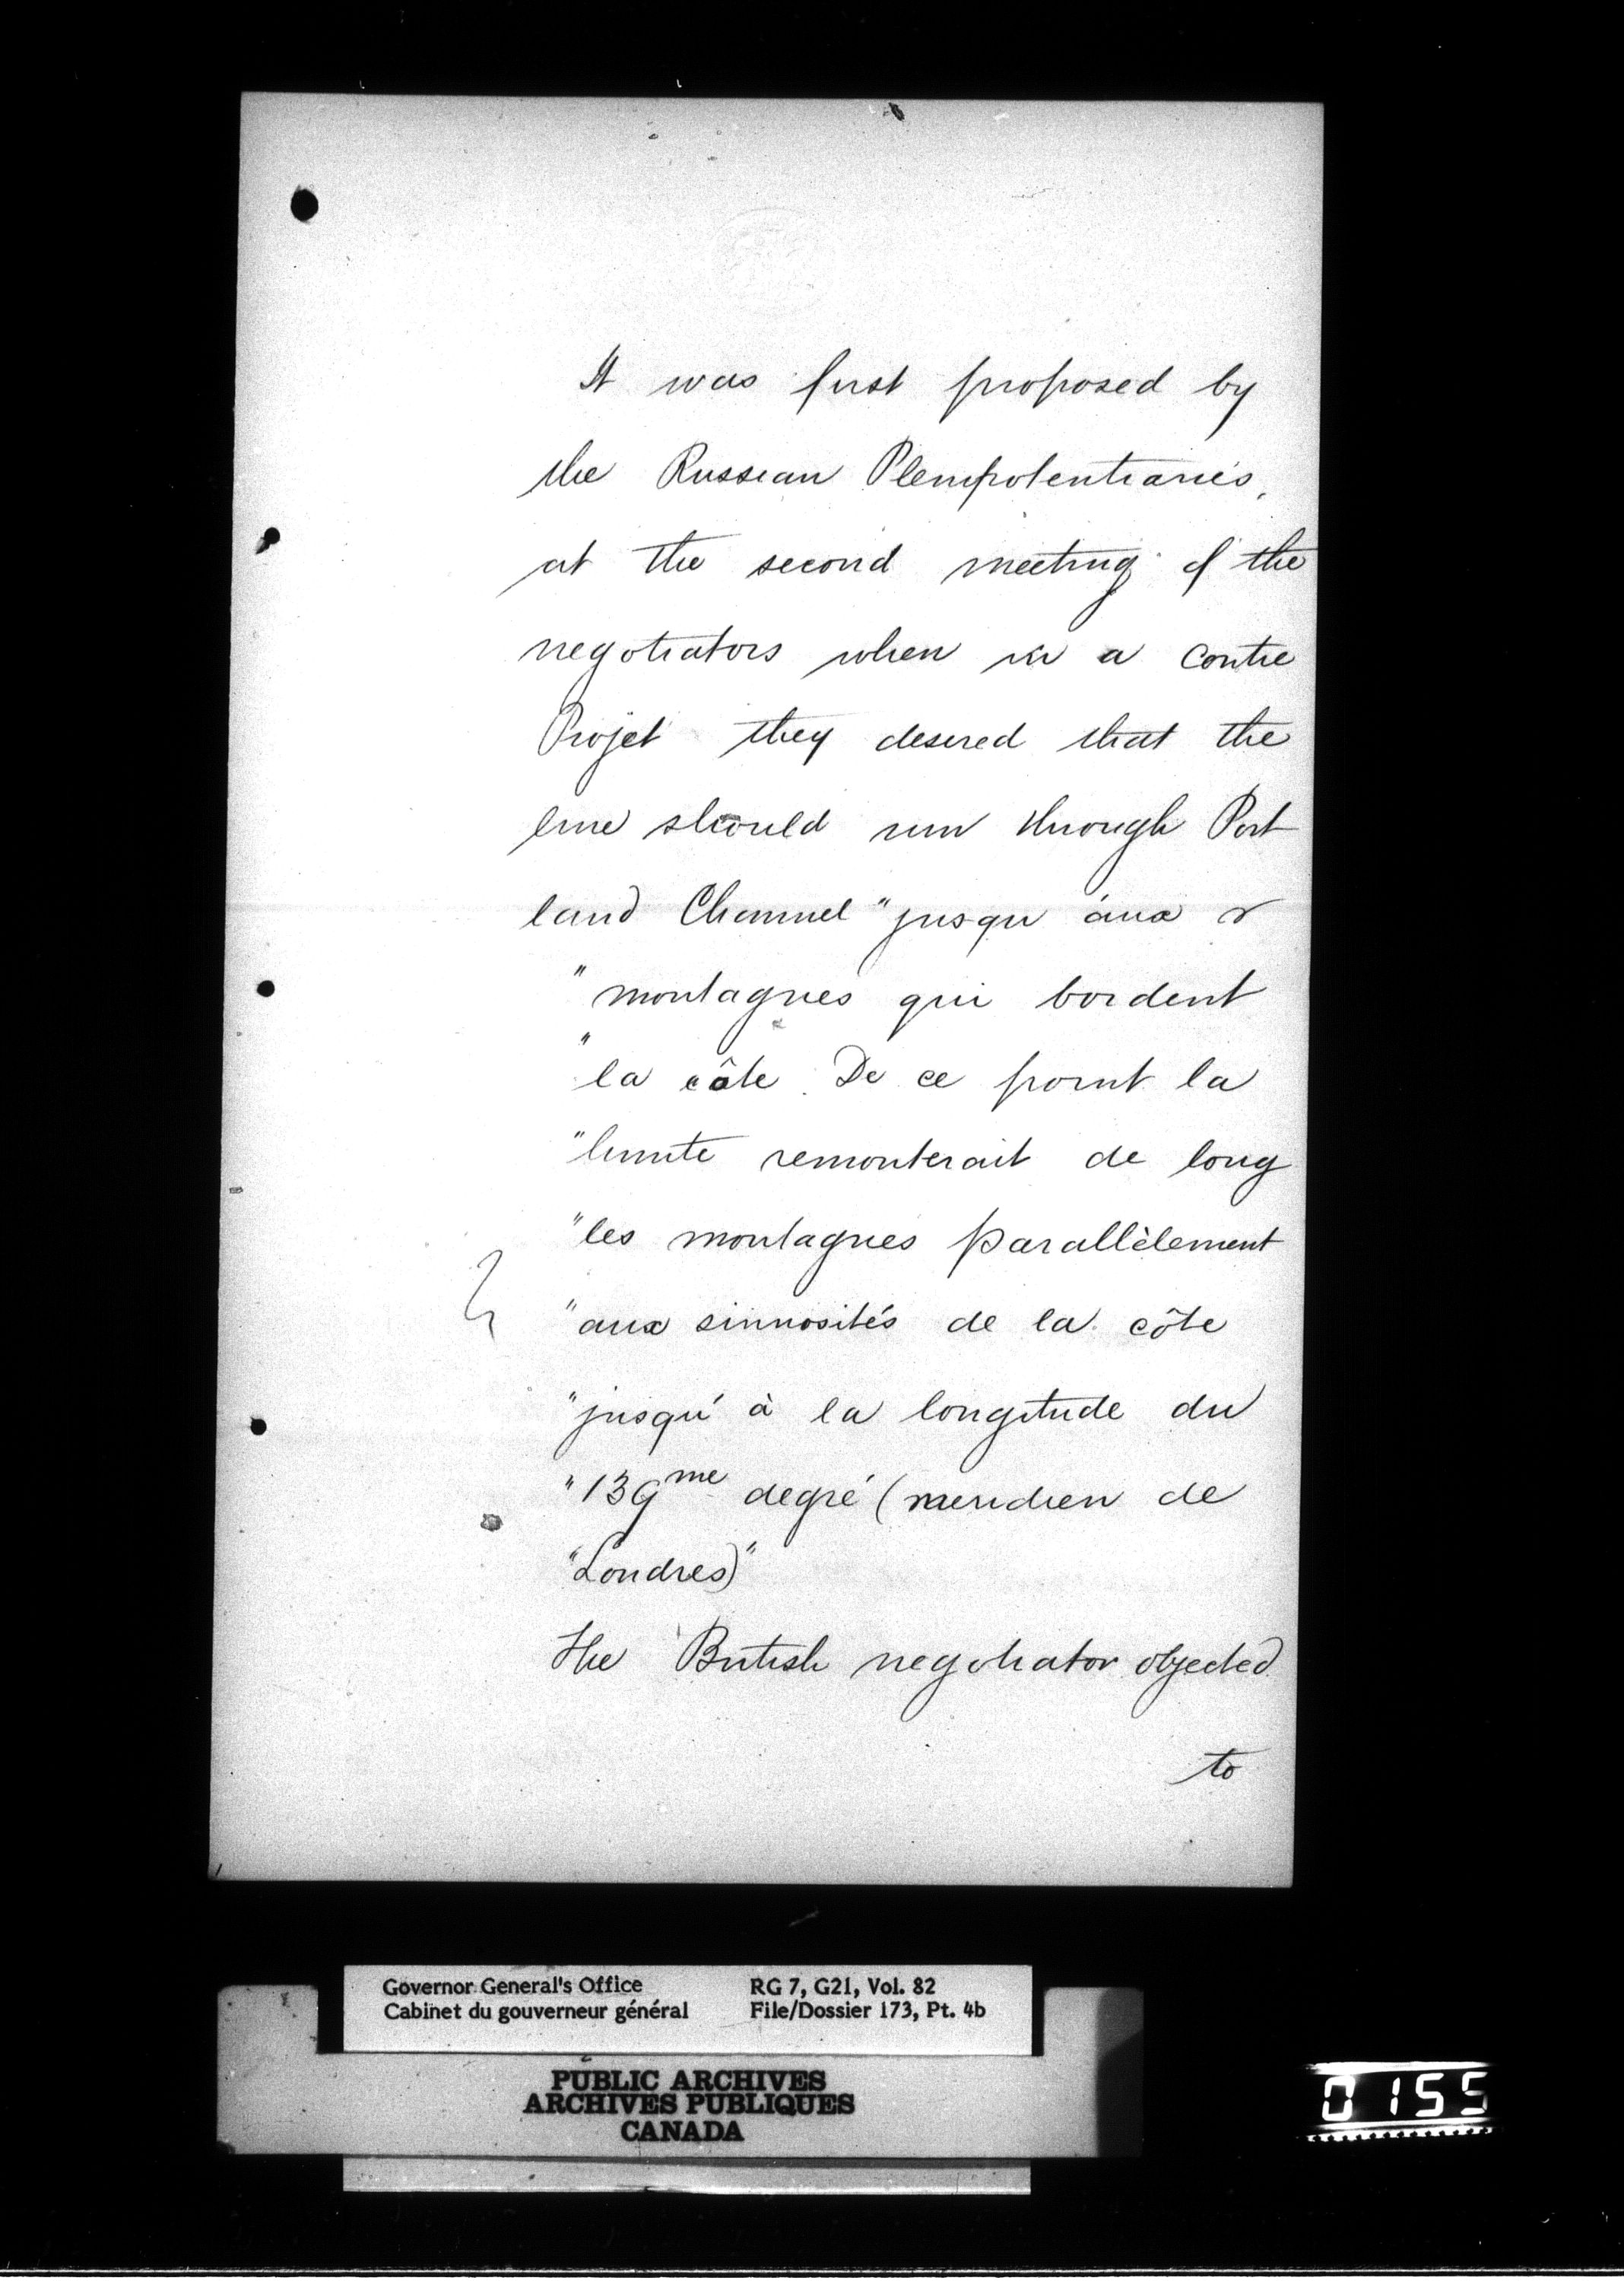 It was first proposed by
the Russian Plenipotentiaries,
at the second meeting of the
negotiators when in a contre
Projet they desired that the
line should run through Port
land Channel "jusqu' aux
"montagnes qui bordent
"la côte. De ce point la
"limite remonterait de long
"les montagnes parallèlement
"aux sinuosités de la côte
"jusqu' à la longitude du
"139me degré (meridien de
"Londres)"
The British negotiator objected
to
Governor General's Office RG 7, G21, Vol. 82
Cabinet du gouverneur général File/Dossier 173, Pt. 4b
PUBLIC ARCHIVES
ARCHIVES PUBLIQUES
CANADA
0155